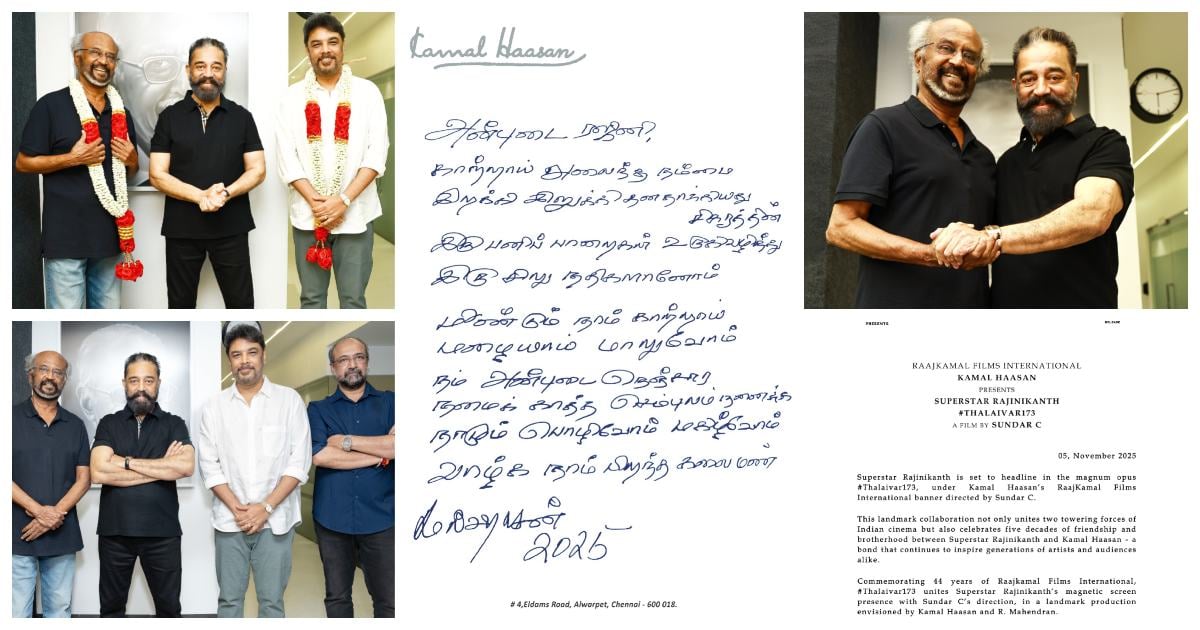 Kamal Haasan
அன்புடை ரஜினி,
காற்றாய் அலைந்த நம்மை
இறக்கி இறுக்கி தனதாக்கியது
சிகரத்தின்
இரு பனிப் பாறைகள் உருகிவழிந்து
இரு சிறு நதிகளானோம்
மீண்டும் நாம் காற்றாய்
மழையாய் மாறுவோம்
நம் அன்புடை நெஞ்சார
நமைக் காத்த செம்புலம் நனைக்க
நாமும் பொழிவோம் மகிழ்வோம்
வாழ்க நாம் பிறந்த கலைமண்
2025
# 4,Eldams Road, Alwarpet, Chennai - 600 018.
PRESENTS
RAAJKAMAL FILMS INTERNATIONAL
KAMAL HAASAN
PRESENTS
SUPERSTAR RAJINIKANTH
#THALAIVAR173
A FILM BY SUNDAR C
05, November 2025
Superstar Rajinikanth is set to headline in the magnum opus
#Thalaivar173, under Kamal Haasan's RaajKamal Films
International banner directed by Sundar C.
This landmark collaboration not only unites two towering forces of
Indian cinema but also celebrates five decades of friendship and
brotherhood between Superstar Rajinikanth and Kamal Haasan - a
bond that continues to inspire generations of artists and audiences
alike.
Commemorating 44 years of Raajkamal Films International,
#Thalaivar173 unites Superstar Rajinikanth's magnetic screen
presence with Sundar C's direction, in a landmark production
envisioned by Kamal Haasan and R. Mahendran.